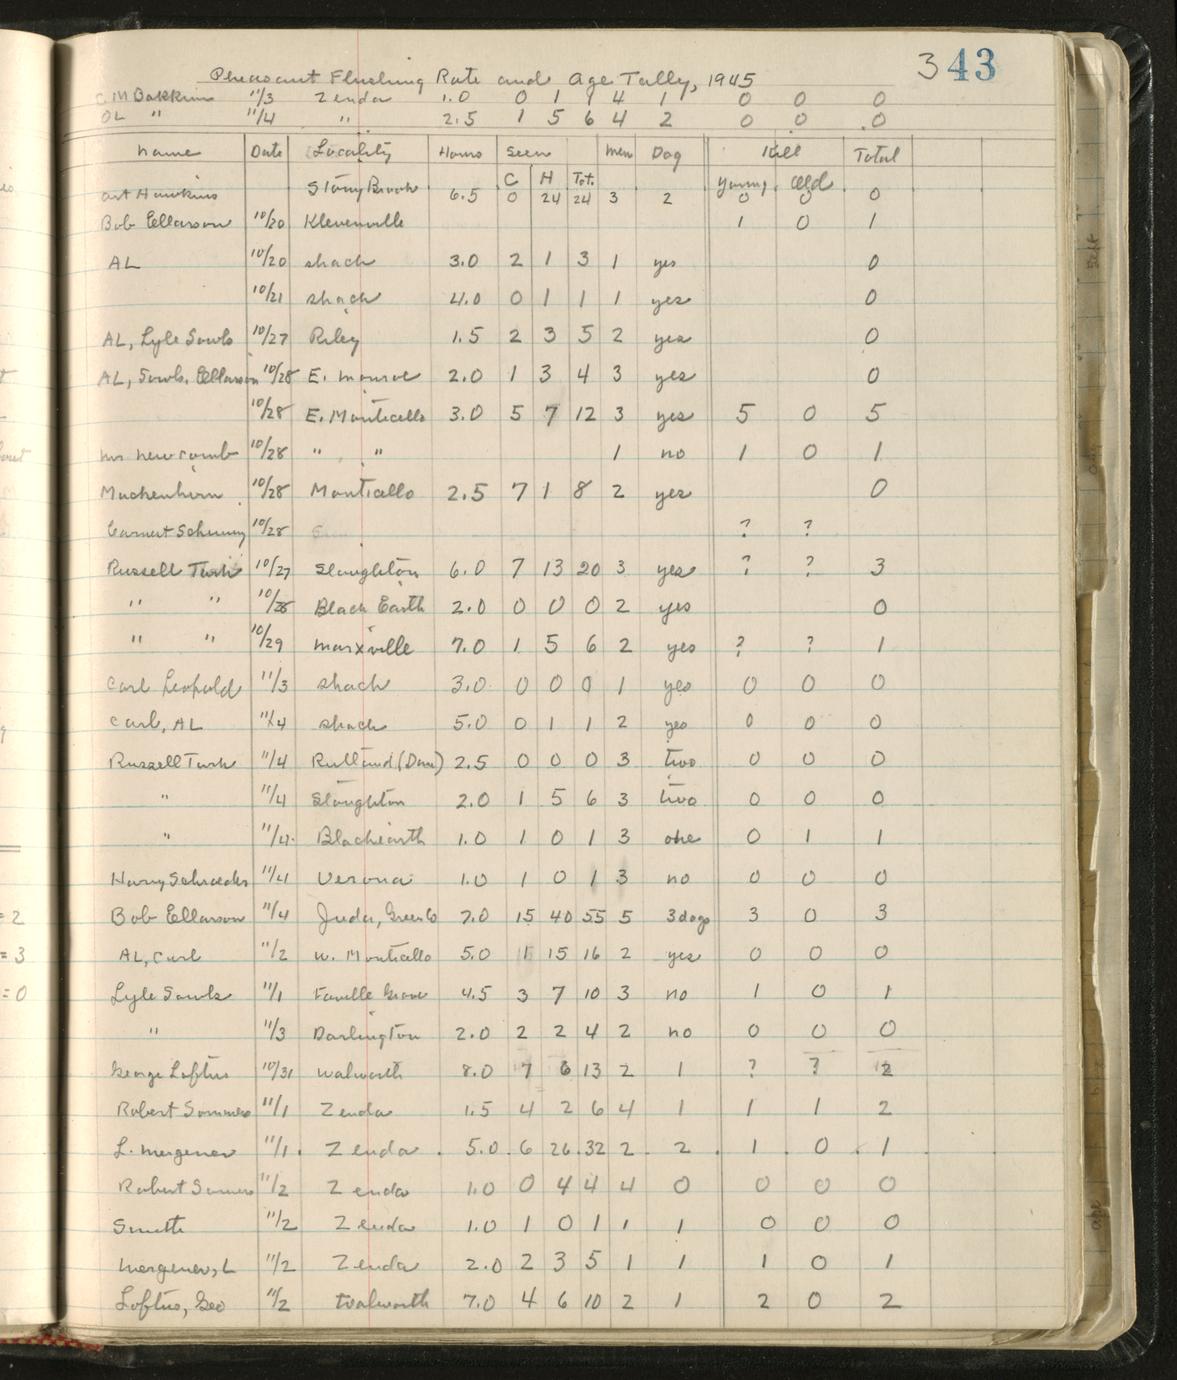 343
Pheasant Flushing Rate and Age Tally, 1945
11/3 Zenda 1.0 0 1 1 4 1 0 0 0
" 11/4 " 2.5 1 5 6 4 2 0 0 0
Name Date Locality Hours Seen Men Dog Kill Total
C H Tot. Young Old
Art Hawkins Stony Brook 6.5 0 24 24 3 2 0 0 0
Bob Ellarson 10/20 Klevenville 1 0 1
AL 10/20 shack 3.0 2 1 3 1 yes 0
10/21 shack 4.0 0 1 1 1 yes 0
AL, Lyle Sowls 10/27 Riley 1.5 2 3 5 2 yes 0
AL, Sowls, Ellarson 10/28 E. Monroe 2.0 1 3 4 3 yes 0
10/28 E. Monticello 3.0 5 7 12 3 yes 5 0 5
Mr Newcomb 10/28 " " 1 no 1 0 1
Muckenhirn 10/28 Monticello 2.5 7 1 8 2 yes 0
10/28 ? ?
Russell Turk 10/27 Stoughton 6.0 7 13 20 3 yes ? ? 3
" " 10/28 Black Earth 2.0 0 0 0 2 yes 0
" " 10/29 Marxville 7.0 1 5 6 2 yes ? ? 1
Carl Leopold 11/3 shack 3.0 0 0 0 1 yes 0 0 0
Carl, AL 11/4 shack 5.0 0 1 1 2 yes 0 0 0
Russell Turk 11/4 Rutland (Dane) 2.5 0 0 0 3 two 0 0 0
" 11/4 Stoughton 2.0 1 5 6 3 two 0 0 0
" 11/4 Black earth 1.0 1 0 1 3 one 0 1 1
Harry Schroeder 11/4 Verona 1.0 1 0 1 3 no 0 0 0
Bob Ellarson 11/4 Juda, Green Co 7.0 15 40 55 5 3 dogs 3 0 3
AL, Carl 11/2 W. Monticello 5.0 1 15 16 2 yes 0 0 0
Lyle Sowls 11/1 Faville Grove 4.5 3 7 10 3 no 1 0 1
" 11/3 Darlington 2.0 2 2 4 2 no 0 0 0
George Loftus 10/31 Walworth 8.0 7 6 13 2 1 ? ? 2
Robert Sommers 11/1 Zenda 1.5 4 2 6 4 1 1 1 2
L. Mergener 11/1 Zenda 5.0 6 26 32 2 2 1 0 1
Robert Somers 11/2 Zenda 1.0 0 4 4 4 0 0 0 0
Smith 11/2 Zenda 1.0 1 0 1 1 1 0 0 0
Mergener, L 11/2 Zenda 2.0 2 3 5 1 1 1 0 1
Loftus, Geo 11/2 Walworth 7.0 4 6 10 2 1 2 0 2
= 2
= 3
= 0